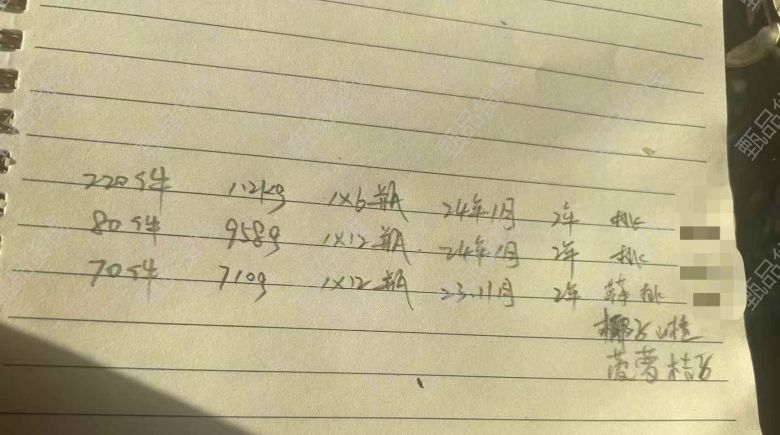 220件 1.2kg 1×6瓶 24年1月 2年 桃
80件 958g 1×12瓶 24年1月 2年 桃
70件 710g 1×12瓶 23.11月 2年 草桃
椰子
菠萝桔子
甄品在线